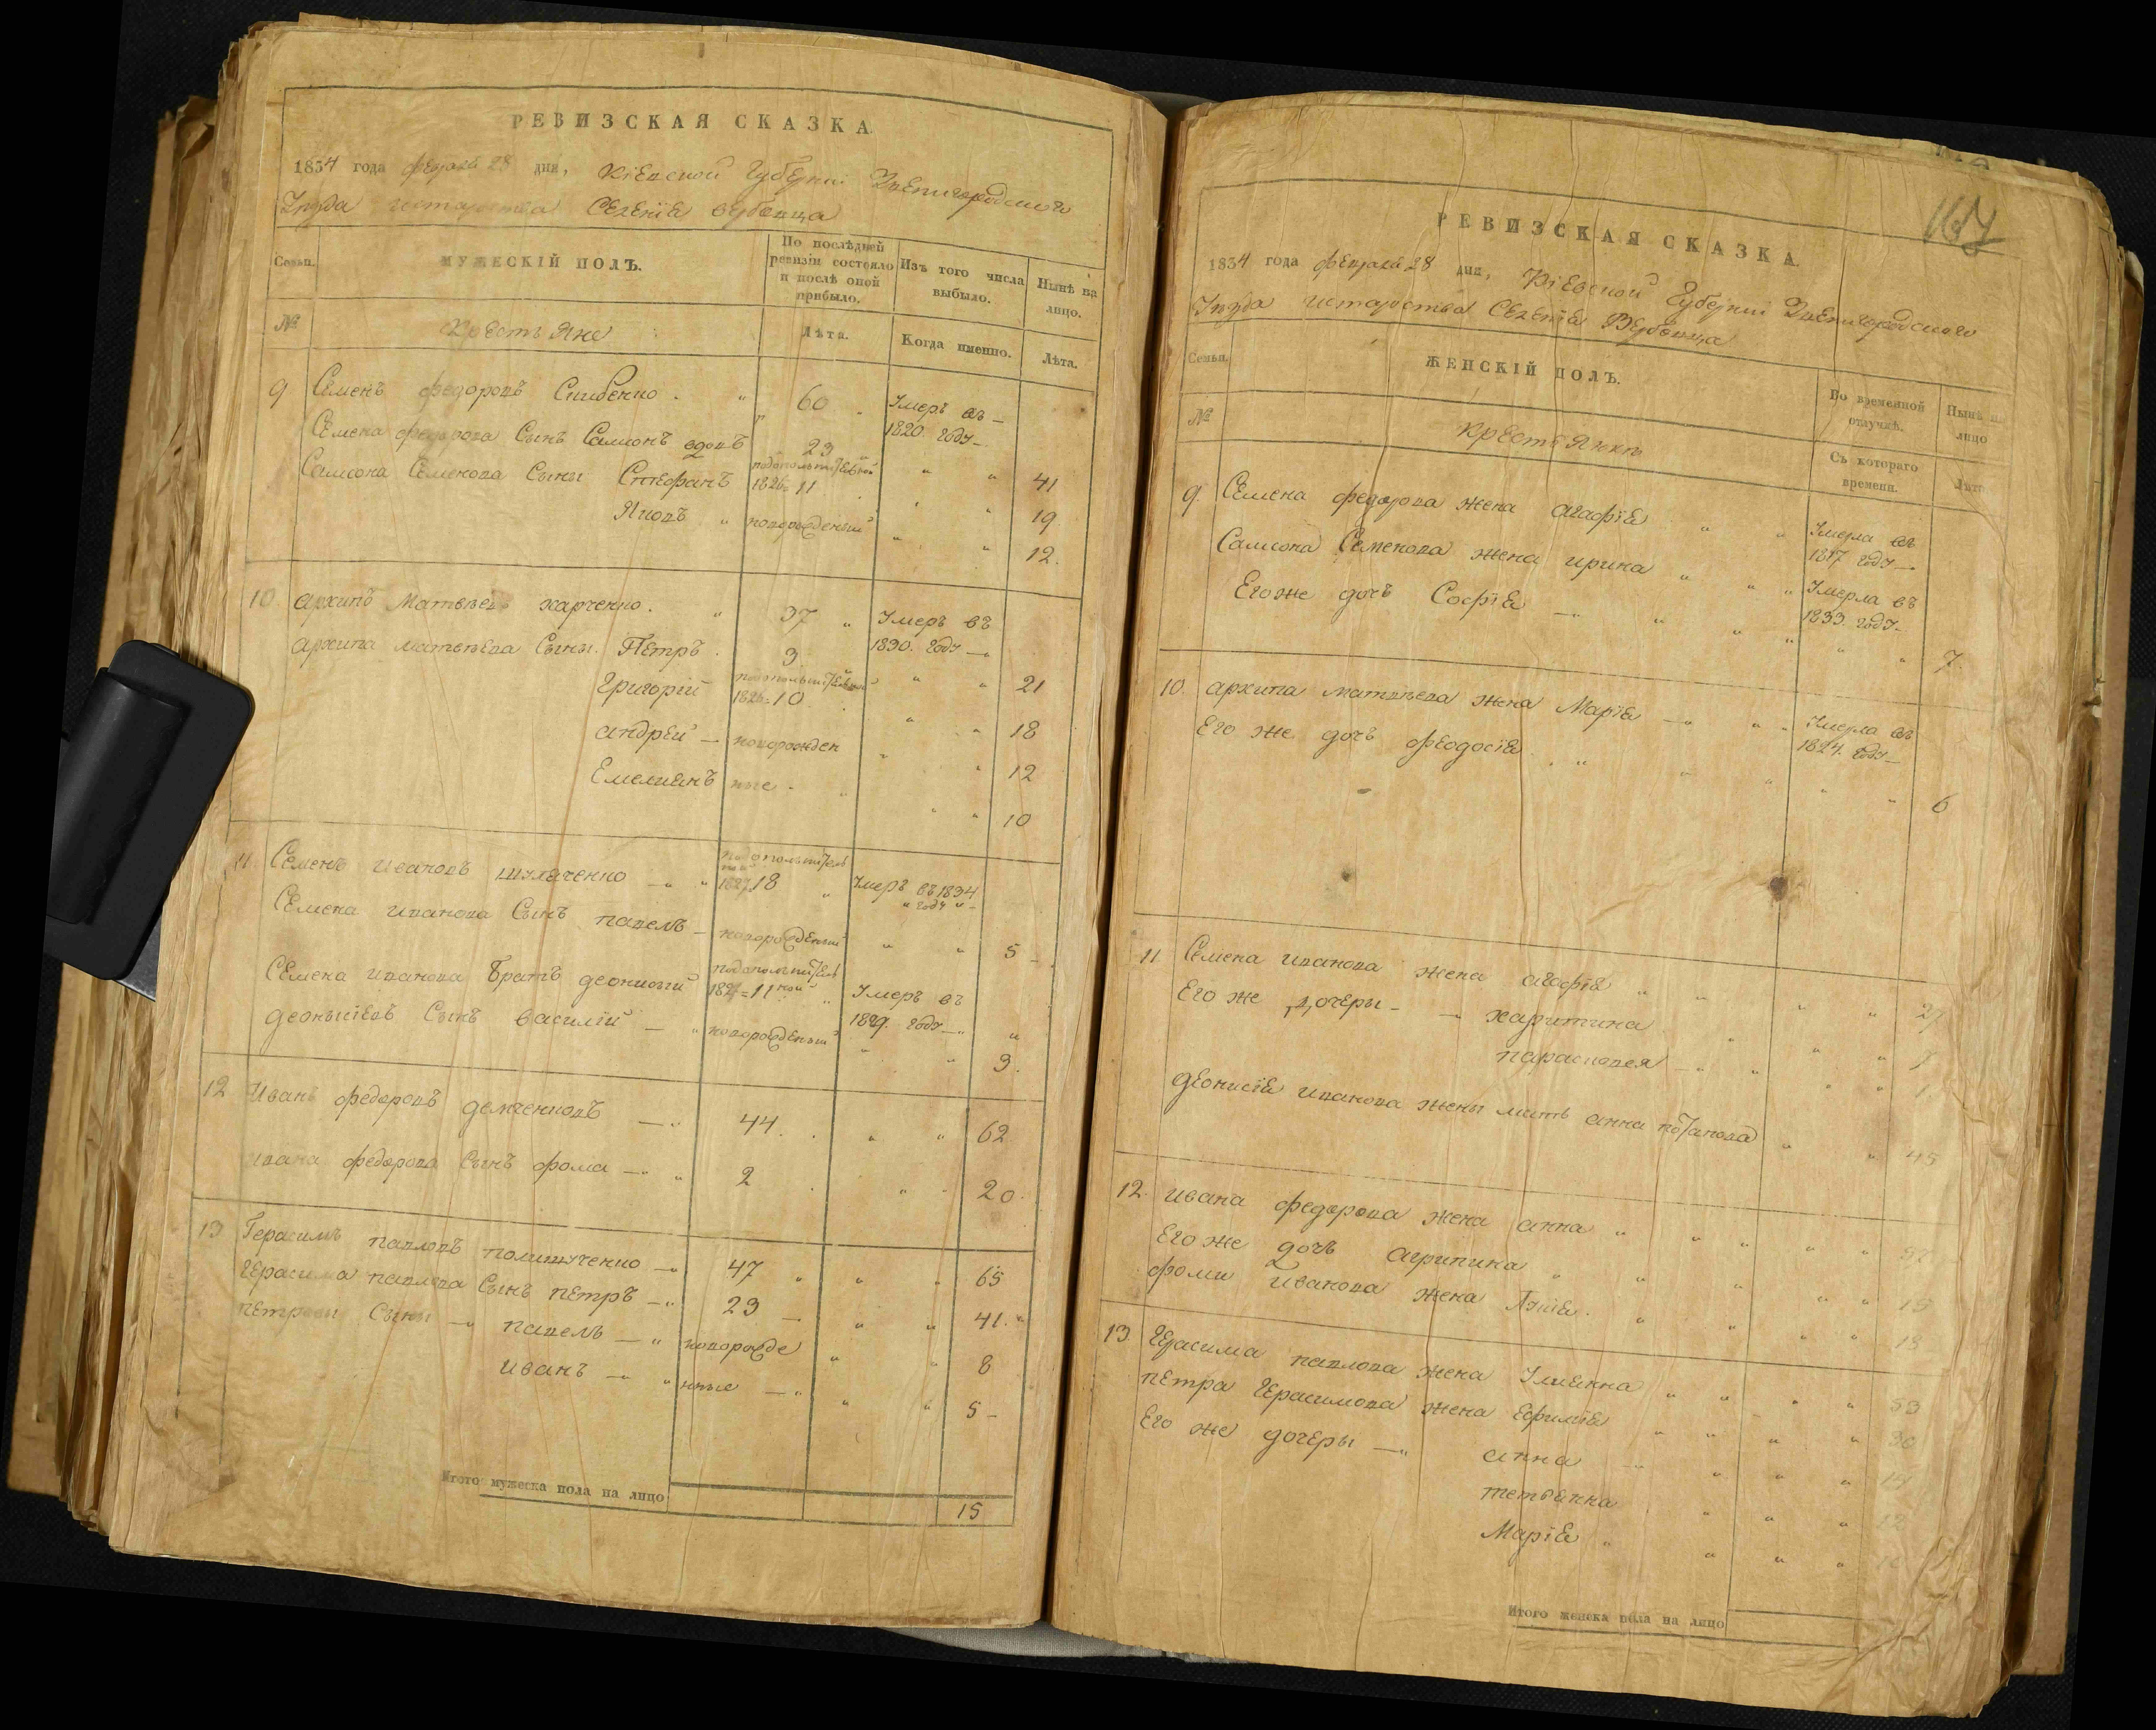 РЕВИЗСКАЯ СКАЗКА.
1834 года февраля 28 дня, Кіевской Губерніи Звенигородского
Уезда Староства Селеніе Вербовца
Семьи.
МУЖЕСКІЙ ПОЛЪ.
По послѣдней ревизіи состояло и послѣ оной прибыло.
Изъ того числа выбыло.
Нынѣ на лицо.
№
Крестьяне
Лѣта.
Когда именно.
Лѣта.
9 Семенъ федоровъ 60 Умеръ въ
1820. году
Семена федорова Сынъ Самсонъ вдовъ 23 41
Самсона Семенова Сыны Стефанъ 1826 = 11 19
Яковъ новорожденый 12.
10. архипъ Матвеевъ харченко. 37 Умеръ въ
1830. году
архипа матвѣева Сыны. Петръ. 3 21
Григорій 1826 = 10 18
андрей новорожден 12
Емелианъ ные 10
11. Семенъ ивановъ шуляченко 1827 18 Умеръ въ 1834
году
Семена иванова Сынъ павелъ новорожденый 5
Семена иванова братъ деонисий 11 Умеръ въ
1829. году
деонысіевъ Сынъ василій новорожденый 3.
12 Иванъ федоровъ демченковъ 44. 62
ивана федорова Сынъ фома 2 20
13 Герасимъ павловъ полищученко 47 65
Герасима павлова Сынъ петръ 23 41.
петровы Сыны павелъ новорожде 8
иванъ нные 5
Итого мужеска пола на лицо 15
167
РЕВИЗСКАЯ СКАЗКА.
1834 года февраля 28 дня, Кіевской Губерніи Звенигородского
Уезда Староства Селеніе Вербовца
Семьи.
ЖЕНСКІЙ ПОЛЪ.
Во временной отлучкѣ.
Нынѣ на лицо
№
крестьянки
Съ котораго времени.
Лѣта
9. Семена федорова жена агафіе Умерла въ
1817 году
Самсона Семенова жена ирина Умерла въ
1833. году
Егоже дочь Софіе 7.
10. архипа матвѣева жена Маріе Умерла въ
1824. году
Его же дочь феодосіе 6
11 Семена иванова жена агафіе 27
Его же дочеры харитина
парасковея 1
деонисіе иванова жены мать анна потапова 45
12. ивана федорова жена анна
Егоже дочь агрипина
фомы иванова жена
13. Герасима павлова жена Улиянна 53
петра Герасимова жена ефиміе 30
Его же дочеры анна 14
тетьянна 12
Маріе
Итого женска пола на лицо